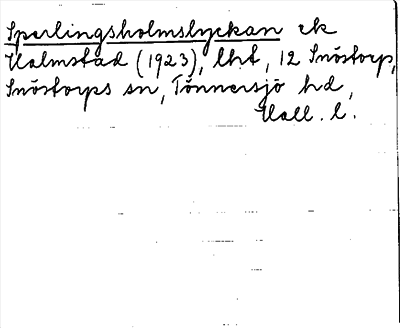 Sperlingsholmslyckan ek
Halmstad (1923), lht, 12 Snöstorp,
Snöstorps sn, Tönnersjö hd,
Hall. l.